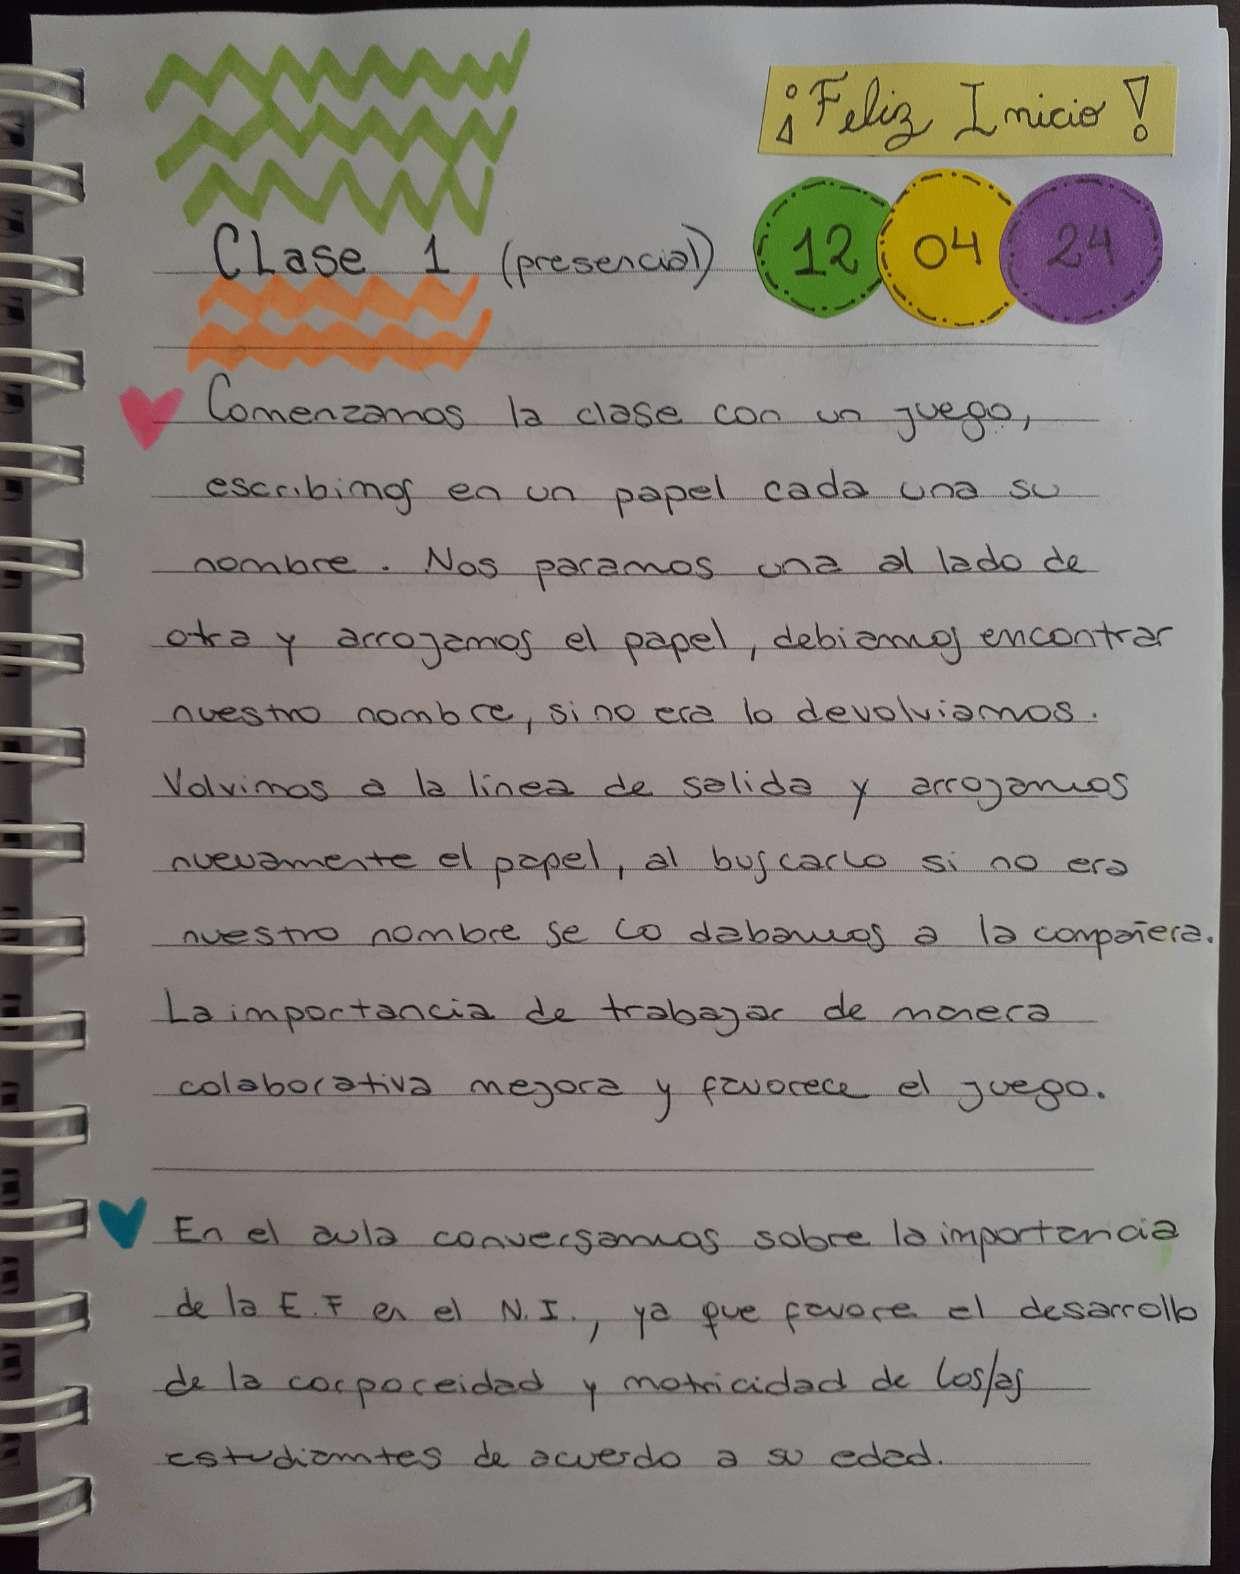 ¡Feliz Inicio!
12 04 24
Clase 1 (presencial)
Comenzamos la clase con un juego,
escribimos en un papel cada una su
nombre. Nos paramos una al lado de
otra y arrojamos el papel, debiamos encontrar
nuestro nombre, si no era lo devolviamos.
Volvimos a la linea de salida y arrojamos
nuevamente el papel, al buscarlo si no era
nuestro nombre se lo dabamos a la compañera.
La importancia de trabajar de manera
colaborativa mejora y favorece el juego.
En el aula conversamos sobre la importancia
de la E.F en el N.I., ya que favore el desarrollo
de la corporeidad y motricidad de los/as
estudiantes de acuerdo a su edad.